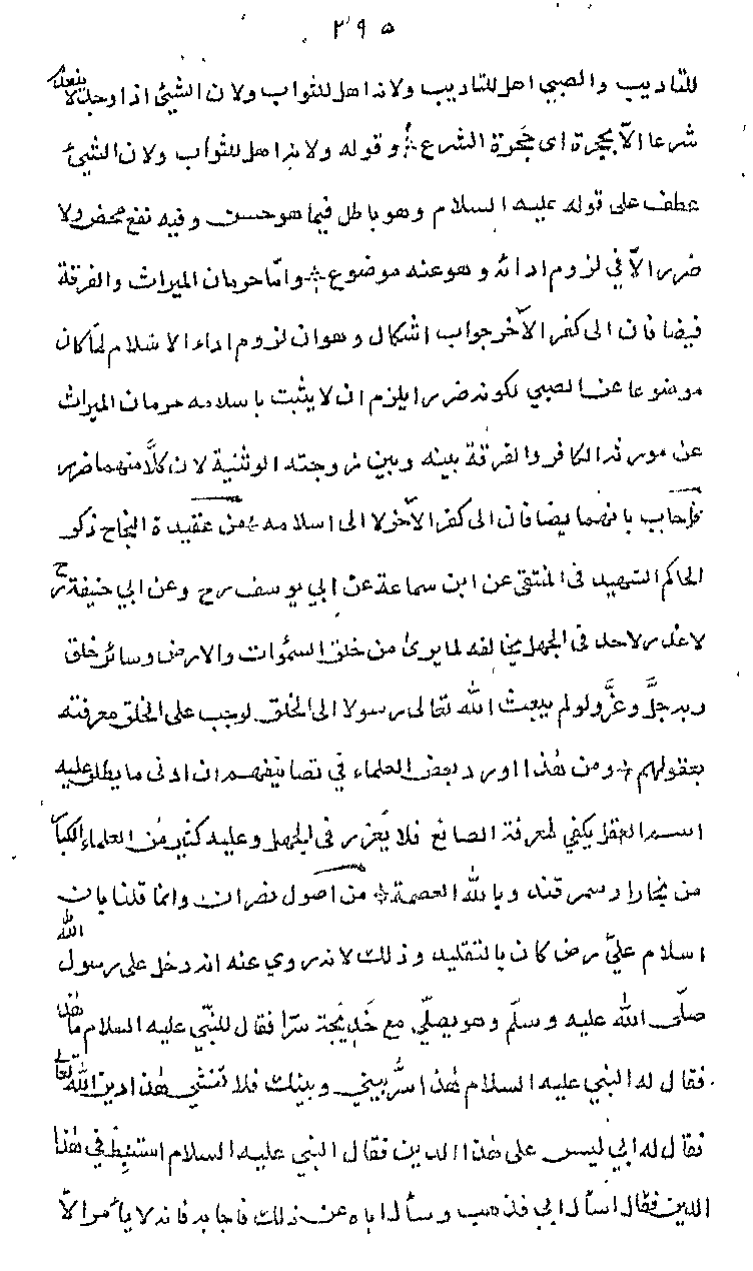 ٣٩٥
للتاديب والصبي اهل للتاديب ولانه اهل للثواب ولان الشيئ اذا وجد لا ينعدم
شرعا الا بحجرة اى حجرة الشرع وقوله ولانه اهل للثواب ولان الشيئ
عطف على قوله عليه السلام وهو باطل فيما هو حسن وفيه نفع محض ولا
ضرر الّا في لزوم ادائه وهو عنه موضوع وامّا حرمان الميراث والفرقة
فيضافان الى كفر الآخر جواب اشكال وهو ان لزوم اداء الاسلام لمّا كان
موضوعا عن الصبي لكونه ضررا يلزم ان لا يثبت باسلامه حرمان الميراث
عن مورثه الكافر والفرقة بينه وبين زوجته الوثنية لان كلًّا منهما ضرر
فاجاب بانهما يضافان الى كفر الآخر لا الى اسلامه من عقيدة النجاح ذكر
الحاكم الشهيد في المنتقى عن ابن سماعة عن ابي يوسف رح وعن ابي حنيفة رح
لا عذر لاحد في الجهل بخالقه لما يرىٰ من خلق السمٰوات والارض وسائر خلق
ربه جلَّ وعزَّ ولو لم يبعث الله تعالى رسولا الى الخلق لوجب على الخلق معرفته
بعقولهم ومن هٰذا اورد بعض العلماء في تصانيفهم ان ادنى ما يطلق عليه
اسم العقل يكفي لمعرفة الصانع فلا يعزر في الجهل وعليه كثير من العلماء الكبار
من بخارا وسمرقند وبالله العصمة من اصول نصران وانما قلنا بان
اسلام عليّ رض كان بالتقليد وذلك لانه روي عنه انه دخل على رسول الله
صلّى الله عليه وسلّم وهو يصلّي مع خَدِيْجَة سرّا فقال للنبّي عليه السلام ما هٰذا
فقال له النبي عليه السلام هٰذا سرُّ بيني وبينك فلا تفشي هٰذا دين الله تعالى
فقال له ابي ليس على هٰذا الدين فقال النبي عليه السلام استنبط في هٰذا
الدين فقال اسأل ابي فذهب وسأل اباه عن ذلك فاجابه فانه لا يأمر الّا